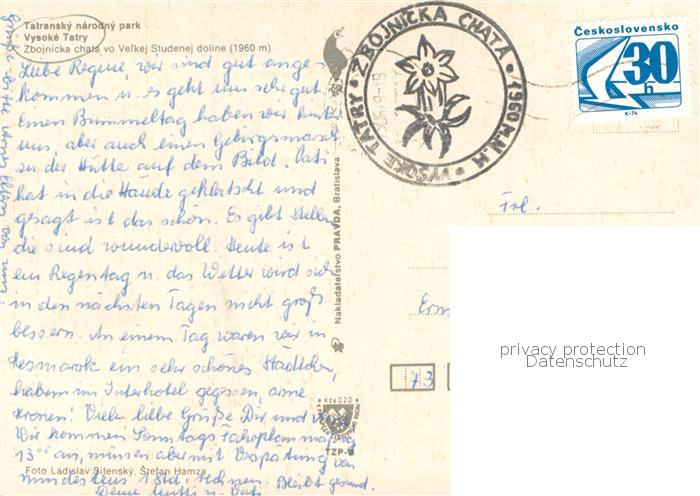 Tatranský národný park
Vysoké Tatry
Zbojnícka chata vo Veľkej Studenej doline (1960 m)
Liebe Regine, wir sind gut ange-
kommen u. es geht uns sehr gut.
Einen Bummeltag haben wir hinter
uns, aber auch einen Gebirgsmarsch
zu der Hütte auf dem Bild. Vati
hat in die Hände geklatscht und
gesagt ist das schön. Es gibt Stellen
die sind wundervoll. Heute ist
ein Regentag u. das Wetter wird sich
in den nächsten Tagen nicht groß
bessern. An einem Tag waren wir in
Kesmarok ein sehr schönes Städtchen,
haben im Interhotel gegessen, arme
Kronen! Viele liebe Grüße Dir und
Wir kommen Sonntags Fahrplanmäßig
13 an, müssen aber mit Verspätung von
mindestens 1 Std. rechnen. Bleibt gesund.
Deine Mutti u. Vati
Foto Ladislav Sitenský, Štefan Hamza
Nakladateľstvo PRAVDA, Bratislava
Kčs 020
TZP-
VYSOKÉ TATRY • ZBOJNÍCKA CHATA • 1960 M.N.M •
Československo
30 h
K-74
Frl.
73
privacy protection
Datenschutz